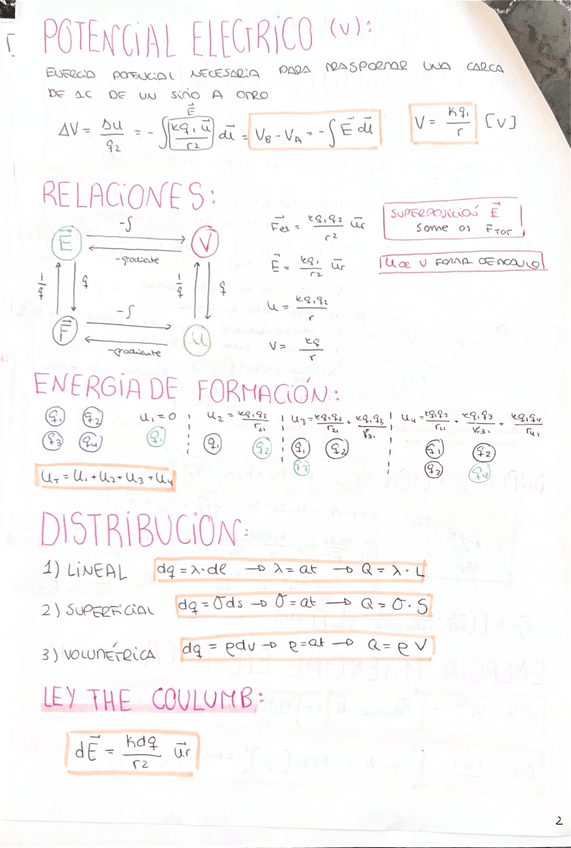 POTENCIAL ELECTRICO (V):
ENERGIA POTENCIAL NECESARIA PARA TRASPORTAR UNA CARGA
DE 1C DE UN SITIO A OTRO
E⃗
ΔV = Δu/q2 = -∫ kq1 u⃗/r2 dl⃗ = VB - VA = -∫ E⃗ dl⃗
V = kq1/r [V]
RELACIONES:
E⃗ -∫ V
-gradiente
1/q q 1/q q
F⃗ -∫ U
-gradiente
F⃗es = kq1q2/r2 u⃗r
E⃗ = kq1/r2 u⃗r
u = kq1q2/r
V = kq/r
SUPERPOSICIÓN E⃗
FTOT
ENERGIA DE FORMACIÓN:
q1 q2 u1 = 0 u2 = kq1q2/r21 u3 = kq1q2/r21 + kq1q3/r31 u4 = kq1q2/r21 + kq1q3/r31 + kq1q4/r41
q3 q4 q1 q1 q2 q1 q2 q3 q1 q2 q3 q4
UT = U1 + U2 + U3 + U4
DISTRIBUCION:
1) LINEAL dq = λ·dl → λ = at → Q = λ·L
2) SUPERFICIAL dq = σds → σ = at → Q = σ·S
3) VOLUMÉTRICA dq = ρdv → ρ = at → Q = ρ V
LEY THE COULUMB:
dE⃗ = kdq/r2 u⃗r
2